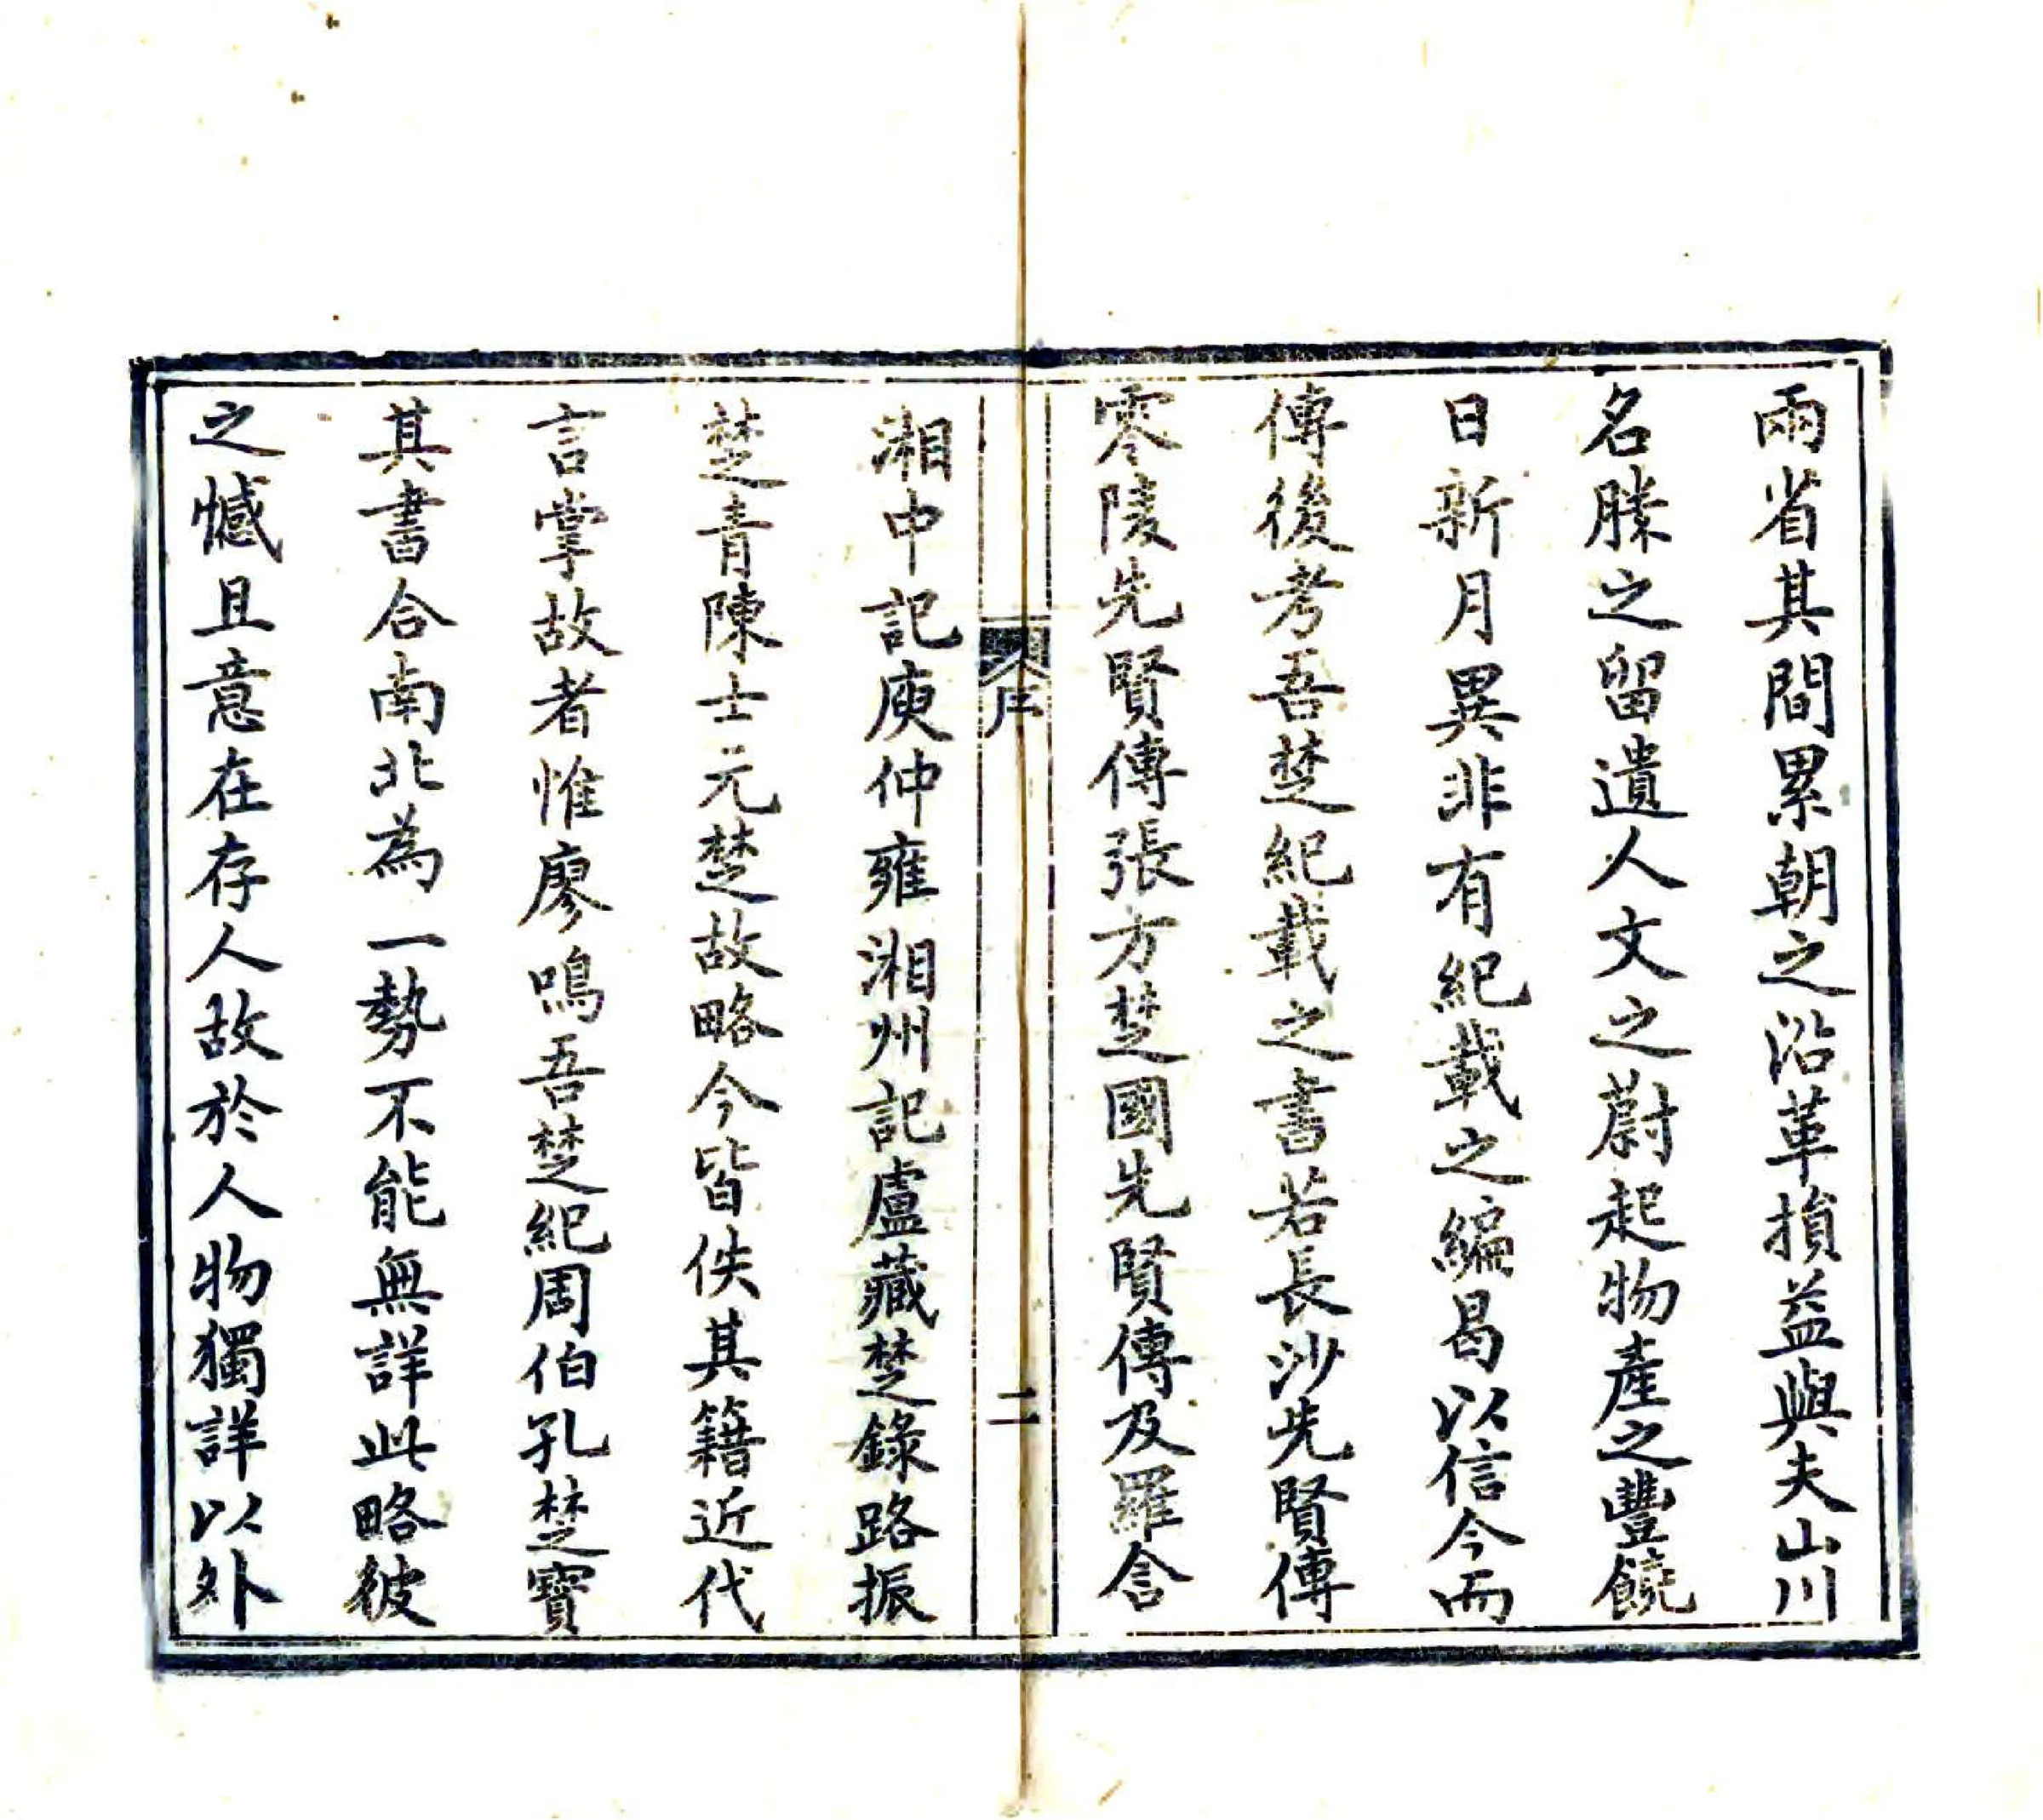 兩省其間累朝之沿革損益與夫山川
名勝之留遺人文之蔚起物產之豐饒
日新月異非有紀載之編曷以信今而
傳後考吾楚紀載之書若長沙先賢傳
零陵先賢傳張方楚國先賢傳及羅含
序
二
湘中記庾仲雍湘州記盧藏楚錄路振
楚青陳士元楚故略今皆佚其籍近代
言掌故者惟廖鳴吾楚紀周伯孔楚寶
其書合南北為一勢不能無詳此略彼
之憾且意在存人故於人物獨詳以外